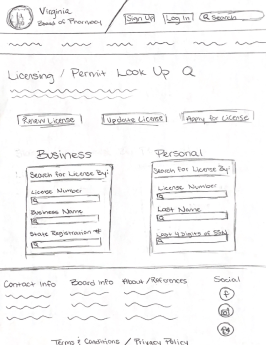 Virginia
Board of Pharmacy
Sign Up
Log In
Search
Licensing / Permit Look Up
Renew License
Update License
Apply for License
Business
Personal
Search For License By:
License Number
Business Name
State Registration #
Search For License By:
License Number
Last Name
Last 4 Digits of SSN
Contact Info
Board Info
About / References
Social
Terms & Conditions / Privacy Policy